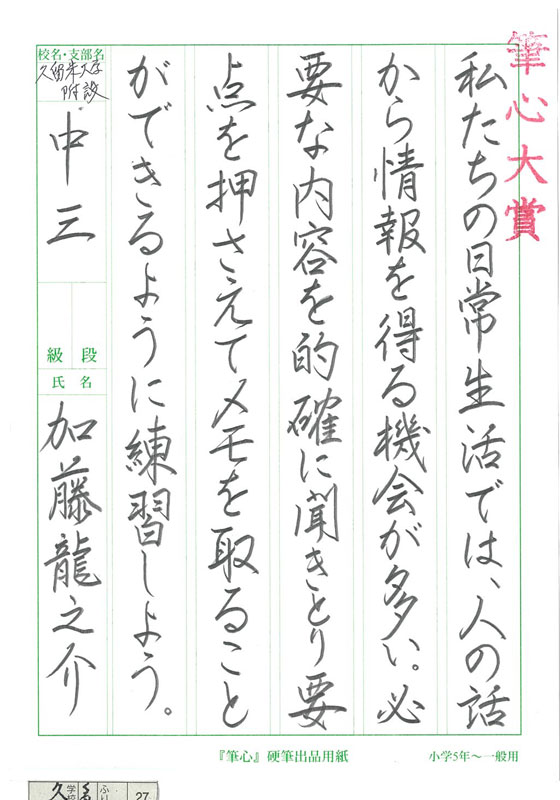 筆心大賞
私たちの日常生活では、人の話
から情報を得る機会が多い。必
要な内容を的確に聞きとり要
点を押さえてメモを取ること
ができるように練習しよう。
校名・支部名
久留米大学
附設
中三
級 段
氏 名
加藤龍之介
『筆心』硬筆出品用紙
小学5年〜一般用
27